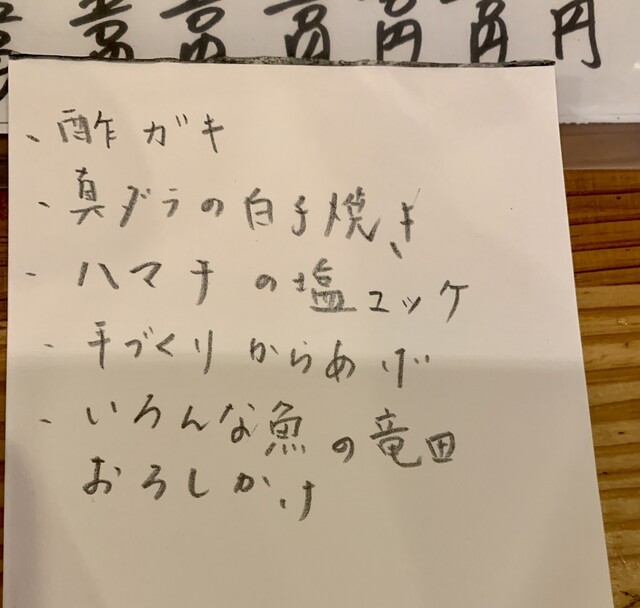 、酢ガキ
、真ダラの白子焼き
、ハマチの塩ユッケ
、手づくりからあげ
、いろんな魚の竜田
おろしかけ